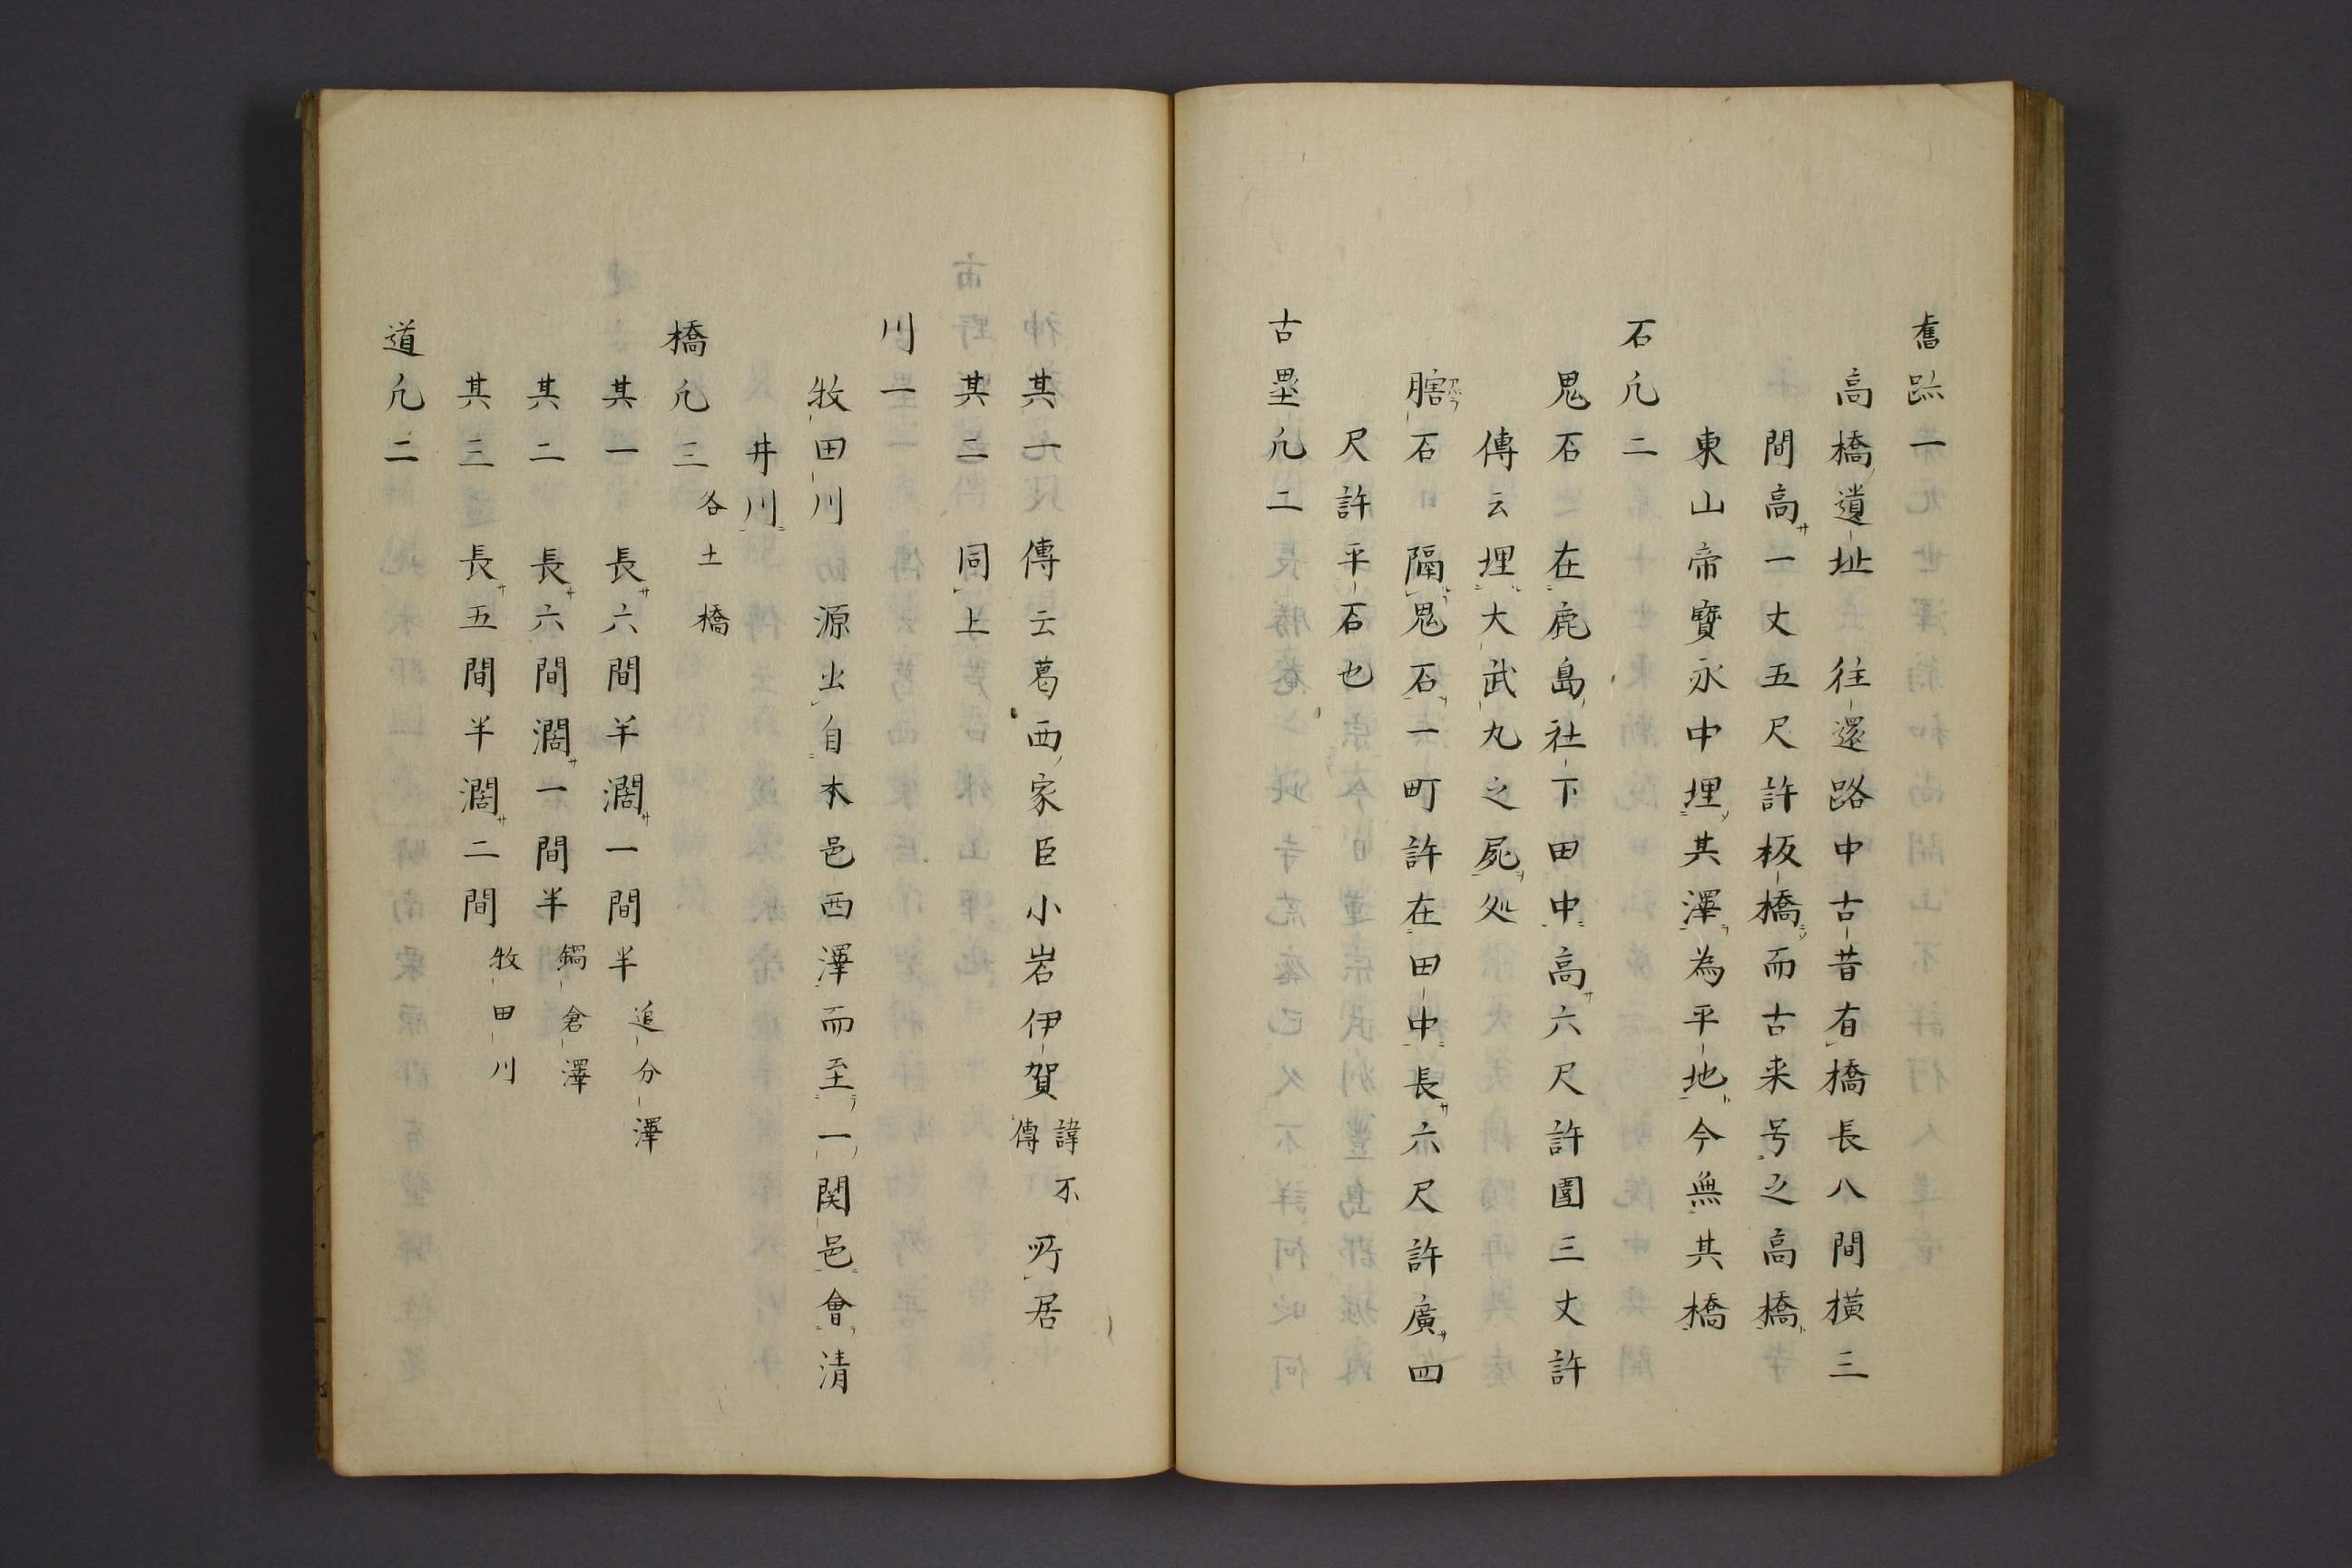 舊跡一
高橋遺址 往還路中古昔有橋長八間横三
間高サ一丈五尺許板橋而古来号之高橋
東山帝寶永中埋其澤為平地今無其橋
石凢二
鬼石在鹿島社下田中高サ六尺許囲三丈許
傳云埋大武丸之屍処
膪石隔鬼石一町許在田中長サ六尺許廣サ四
尺許平石也
古壘凢二
其一 傳云葛西家臣小岩伊賀諱不傳所居
其二 同上
川一
牧田川 源出自本邑西澤而至一関邑會清
井川
橋凢三 各土橋
其一 長サ六間半濶サ一間半 追分澤
其二 長サ六間濶サ一間半 鍋倉澤
其三 長サ五間半濶サ二間 牧田川
道凢二